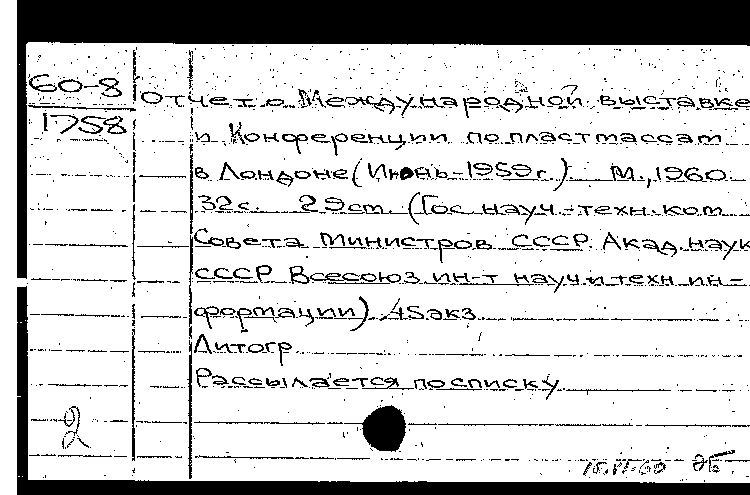 60-8
1758
Отчет о Международной выставке
и Конференции по пластмассам
в Лондоне (Июнь-1959г.) М., 1960
32с. 29см. (Гос науч.-техн. ком
Совета Министров СССР. Акад. наук
СССР Всесоюз. ин-т науч. и техн ин-
формации) 45 экз
Литогр
Рассылается по списку
2
15.VI.60